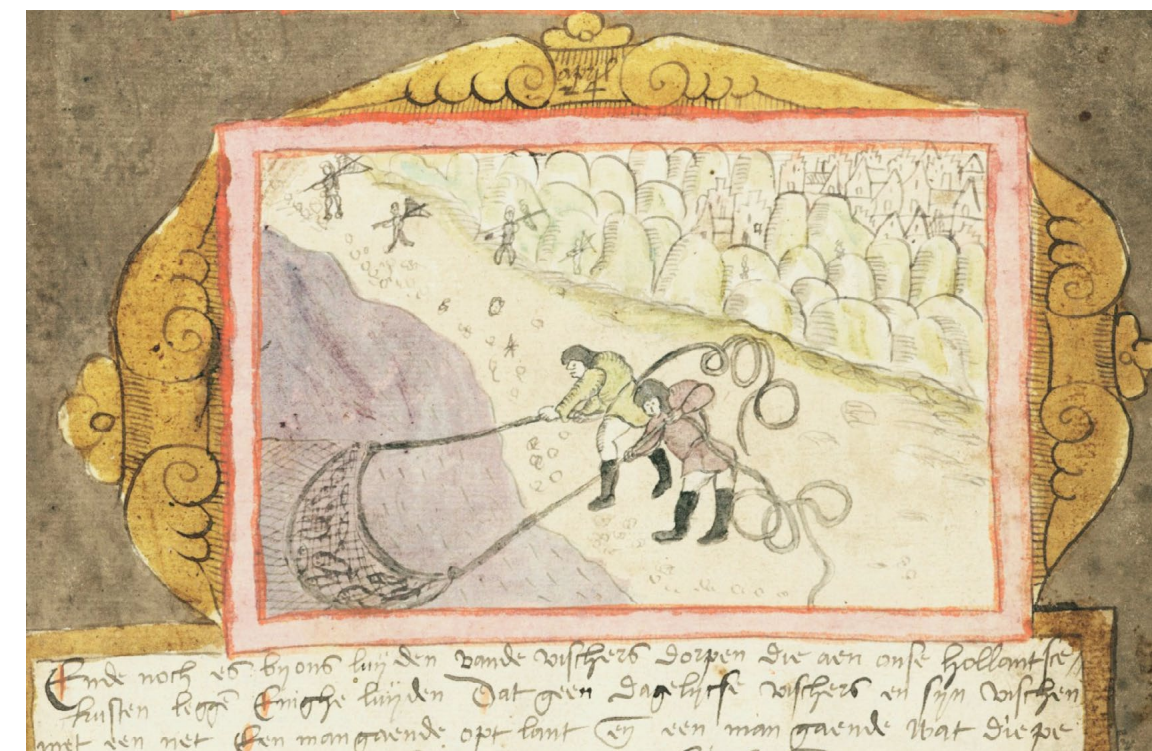 april
24
Ende noch es bij ons luijden vande visschers dorpen die aen onse hollantsse
kusten leggen Eenighe luijden Dat geen dagelijcse visschers en sijn visschen
met een net Een man gaende opt lant en een man gaende wat diepe